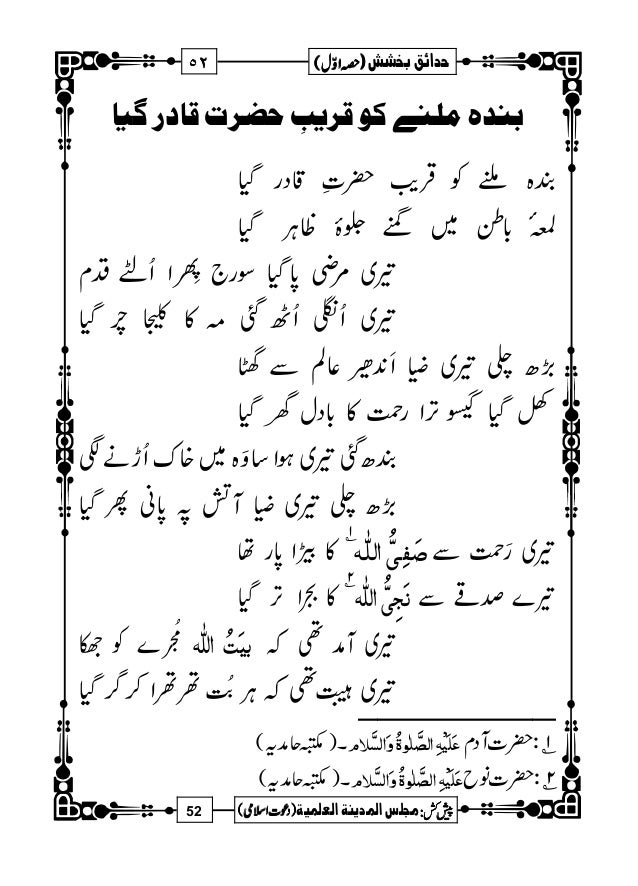 حدائق بخشش (حصہ اوّل)
۵۲
بندہ ملنے کو قریبِ حضرت قادر گیا
بندہ ملنے کو قریب حضرتِ قادر گیا
لمعۂ باطن میں گمنے جلوۂ ظاہر گیا
تیری مرضی پا گیا سورج پِھرا اُلٹے قدم
تیری اُنگلی اُٹھ گئی مہ کا کلیجا چِر گیا
بڑھ چلی تیری ضیا اَندھیر عالم سے گھٹا
کھل گیا گیسو ترا رحمت کا بادل گھر گیا
بندھ گئی تیری ہوا ساوَہ میں خاک اُڑنے لگی
بڑھ چلی تیری ضیا آتش پہ پانی پھر گیا
تیری رَحمت سے صَفِیُّ اللّٰہ ۱؎ کا بیڑا پار تھا
تیرے صدقے سے نَجِیُّ اللّٰہ ۲؎ کا بجرا تر گیا
تیری آمد تھی کہ بیَتُ اللّٰہ مُجرے کو جھکا
تیری ہیبت تھی کہ ہر بُت تھرتھرا کر گر گیا
۱؎ :حضرت آدم عَلَیْہِ الصَّلٰوۃُ وَالسَّلام۔( مکتبہ حامدیہ)
۲؎ :حضرت نوح عَلَیْہِ الصَّلٰوۃُ وَالسَّلام۔( مکتبہ حامدیہ)
پیش کش: مجلس المدینۃ العلمیۃ(دعوت اسلامی)
52